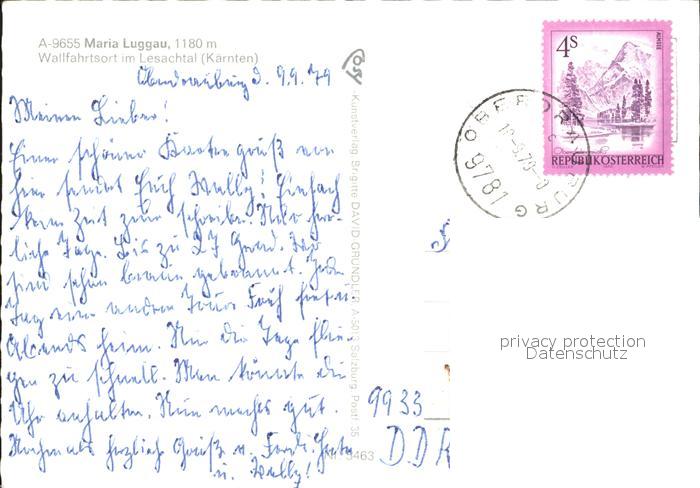 A-9655 Maria Luggau, 1180 m
Wallfahrtsort im Lesachtal (Kärnten)
Oberdrauburg d. 9.9.79
Meine Lieben!
Einen schönen Kartengruß von
hier sendet Euch Wally! Einfach
keine Zeit zum schreiben. Nur herr-
liche Tage. Bis zu 27 Grad. Wir
sind schon braun gebrannt. Jeden
Tag eine andere Tour. Früh fort u.
Abends heim. Nur die Tage flie-
gen zu schnell. Man könnte die
Uhr anhalten. Nun machts gut.
Nochmals herzliche Grüße v. Ferdi,
u. Wally!
Kunstverlag Brigitte DAVID-GRÜNDLER A-5013 Salzburg Postf. 35
Nr. 3463
4S
ALMSEE
REPUBLIK ÖSTERREICH
OBERDRAUBURG
9781
9933
DDR
privacy protection
Datenschutz